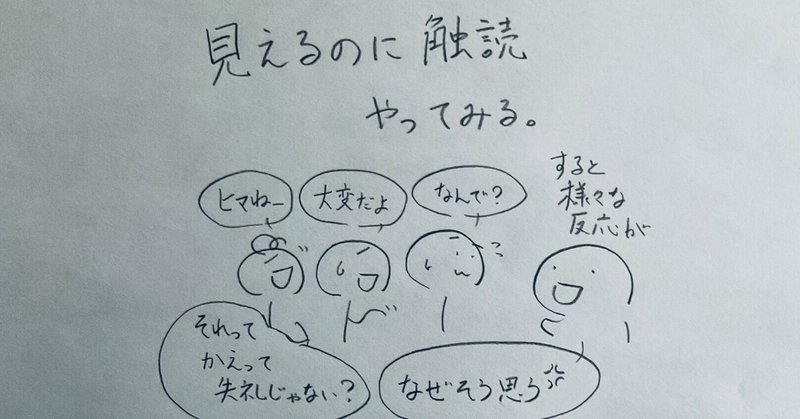 見えるのに触読
やってみる。
ヒマねー
大変だよ
なんで?
すると
様々な
反応が
それって
かえって
失礼じゃない?
なぜそう思う